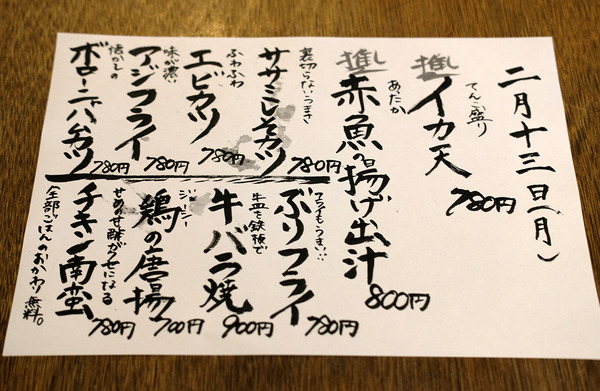 二月十三日(月)
推し
てんこ盛り
イカ天
780円
推し
あったか
赤魚の揚げ出汁
800円
裏切らないうまさ
ササミしそカツ
780円
ふわふわ
エビカツ
780円
味が濃い
アジフライ
780円
懐かしの
ボローニャハムカツ
780円
フライもうまい
ぶりフライ
780円
牛皿を鉄板で
牛バラ焼
900円
ジューシー
鶏の唐揚
700円
せめの甘酢がクセになる
チキン南蛮
780円
全部、ごはんのおかわり無料。